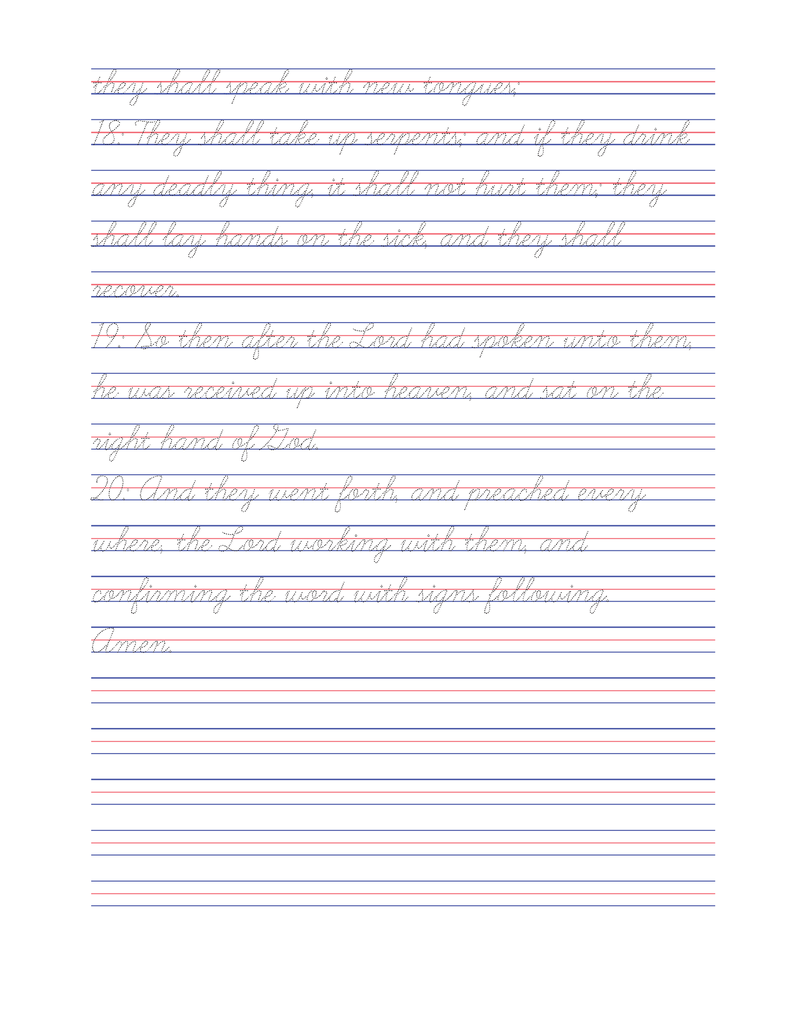 they shall speak with new tongues;
18: They shall take up serpents; and if they drink
any deadly thing, it shall not hurt them; they
shall lay hands on the sick, and they shall
recover.
19: So then after the Lord had spoken unto them,
he was received up into heaven, and sat on the
right hand of God.
20: And they went forth, and preached every
where, the Lord working with them, and
confirming the word with signs following.
Amen.